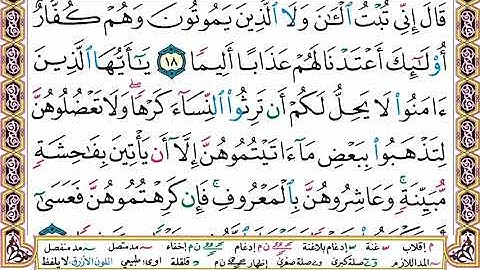 قَالَ إِنِّي تُبْتُ ٱلْـَٰٔنَ وَلَا ٱلَّذِينَ يَمُوتُونَ وَهُمْ كُفَّارٌ
أُو۟لَٰٓئِكَ أَعْتَدْنَا لَهُمْ عَذَابًا أَلِيمًا ١٨ يَٰٓأَيُّهَا ٱلَّذِينَ
ءَامَنُوا۟ لَا يَحِلُّ لَكُمْ أَن تَرِثُوا۟ ٱلنِّسَآءَ كَرْهًا ۖ وَلَا تَعْضُلُوهُنَّ
لِتَذْهَبُوا۟ بِبَعْضِ مَآ ءَاتَيْتُمُوهُنَّ إِلَّآ أَن يَأْتِينَ بِفَٰحِشَةٍ
مُّبَيِّنَةٍ ۚ وَعَاشِرُوهُنَّ بِٱلْمَعْرُوفِ ۚ فَإِن كَرِهْتُمُوهُنَّ فَعَسَىٰٓ
م إقلاب غنة إدغام بلاغنة ن م إدغام إخفاء مد متصل مد منفصل
المد اللازم صلة كبرى صلة صغرى إظهار قلقلة اوى: طبيعي اللون الأزرق: لا يلفظ